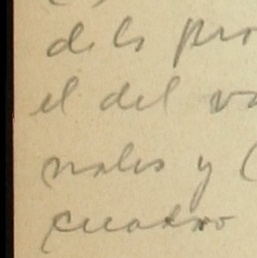 de ls pro
el del va
nales y (
cuadro